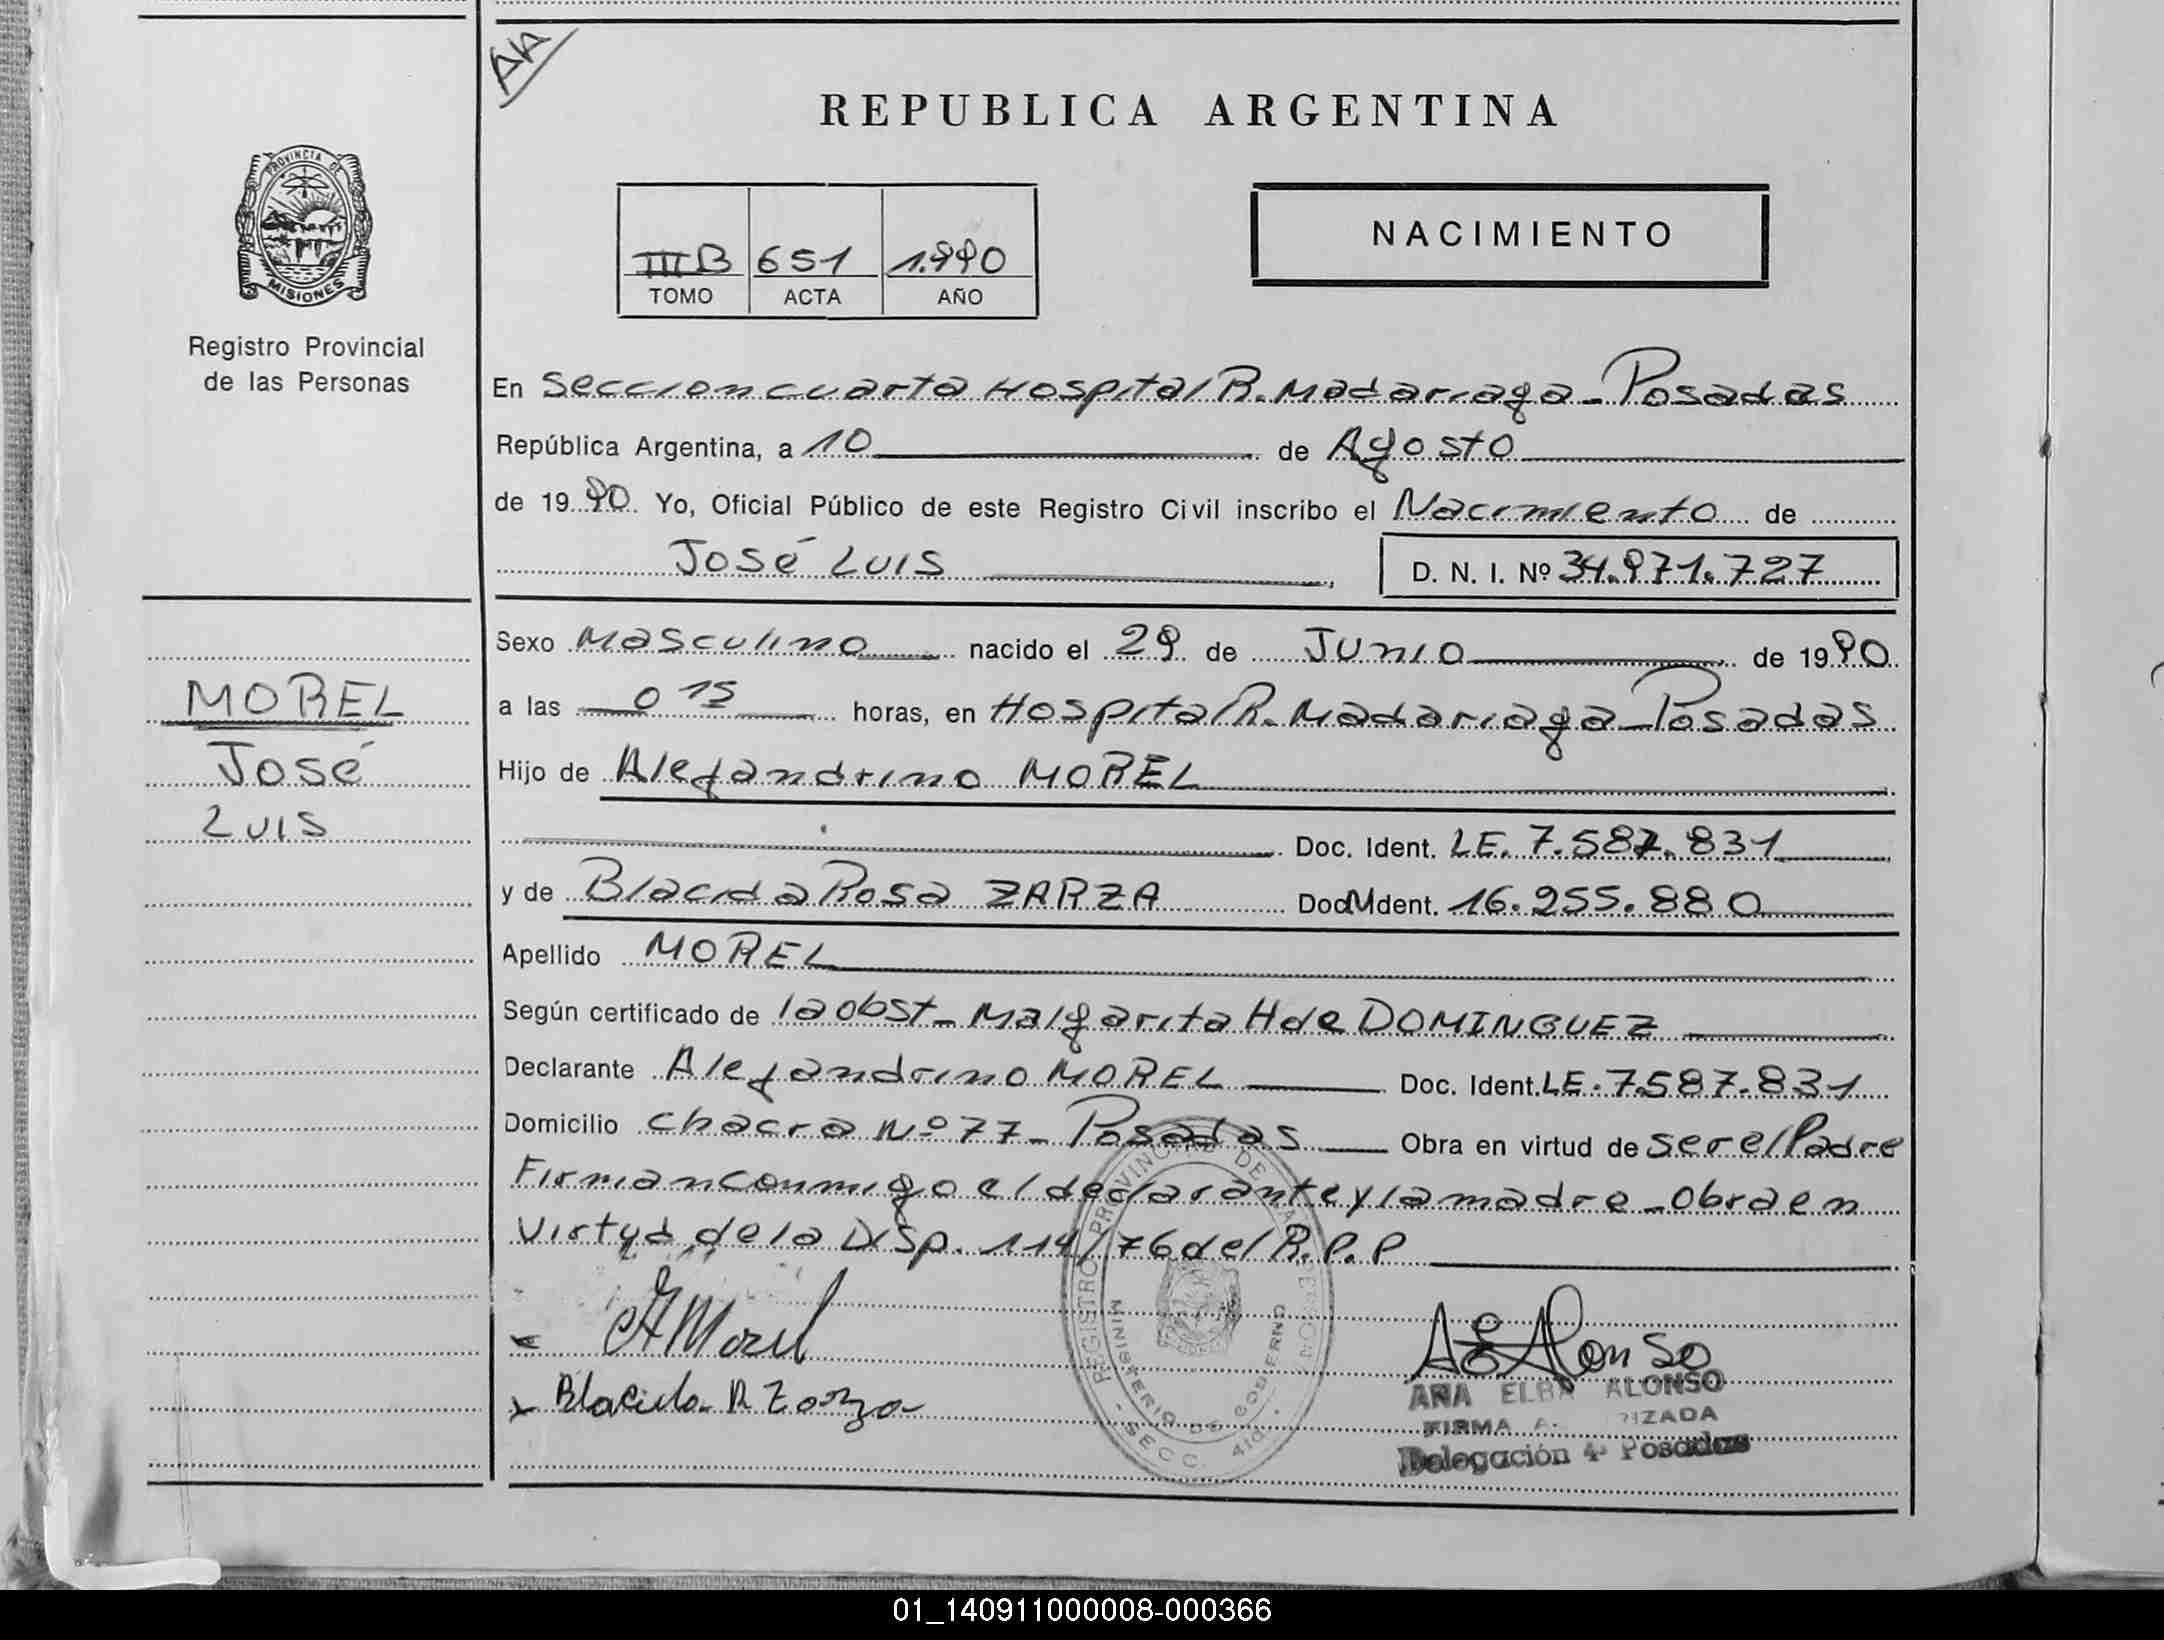 AA
REPUBLICA ARGENTINA
PROVINCIA DE
MISIONES
Registro Provincial
de las Personas
III B 651 1.990
TOMO ACTA AÑO
NACIMIENTO
En Seccion cuarta Hospital R. Madariaga - Posadas
República Argentina, a 10 de Agosto
de 1990. Yo, Oficial Público de este Registro Civil inscribo el Nacimiento de
José Luis, D. N. I. Nº 34.971.727
Sexo Masculino nacido el 29 de Junio de 1990
a las 0 15 horas, en Hospital R. Madariaga - Posadas
Hijo de Alejandrino MOREL
Doc. Ident. LE. 7.587.831
y de Blacida Rosa ZARZA Doc M Ident. 16.255.880
Apellido MOREL
Según certificado de la obst - Malgarita H de DOMINGUEZ
Declarante Alejandrino MOREL Doc. Ident. LE. 7.587.831
Domicilio chacra Nº 77 - Posadas Obra en virtud de ser el Padre
Firman conmigo el declarante y la madre - Obra en
Virtud de la Disp. 114/76 del R.P.P
MOREL
José
Luis
A Morel
Blacida R Zarza
REGISTRO PROVINCIAL DE LAS PERSONAS
MINISTERIO DE GOBIERNO
- SECC. 4ta. -
A E Alonso
ANA ELBA ALONSO
FIRMA A RIZADA
Delegación 4ª Posadas
01_140911000008-000366